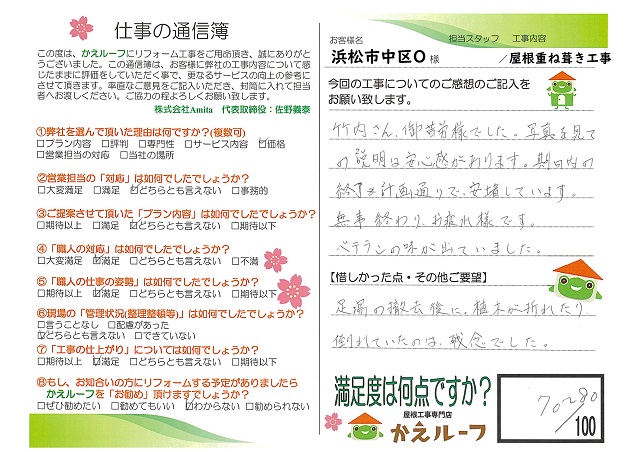 仕事の通信簿
この度は、かえルーフにリフォーム工事をご用命頂き、誠にありがと
うございました。この通信簿は、お客様に弊社の工事内容について感
じたままに評価をしていただく事で、更なるサービスの向上の参考に
させて頂きます。率直なご意見をご記入いただき、封筒に入れて担当
者へお渡しください。ご協力の程よろしくお願い致します。
株式会社Amita 代表取締役：佐野義泰
①弊社を選んで頂いた理由は何ですか？(複数可)
□プラン内容 □評判 □専門性 □サービス内容 ☑価格
□営業担当の対応 □当社の場所
②営業担当の「対応」は如何でしたでしょうか？
□大変満足 □満足 ☑どちらとも言えない □事務的
③ご提案させて頂いた「プラン内容」は如何でしたでしょうか？
□期待以上 □満足 ☑どちらとも言えない □期待以下
④「職人の対応」は如何でしたでしょうか？
□大変満足 ☑満足 □どちらとも言えない □不満
⑤「職人の仕事の姿勢」は如何でしたでしょうか？
□期待以上 ☑満足 □どちらとも言えない □期待以下
⑥現場の「管理状況(整理整頓等)」は如何でしたでしょうか？
□言うことなし □配慮があった
☑どちらとも言えない □できていない
⑦「工事の仕上がり」については如何でしたでしょうか？
□期待以上 ☑満足 □どちらとも言えない □期待以下
⑧もし、お知合いの方にリフォームする予定がありましたら
かえルーフを「お勧め」頂けますでしょうか？
□ぜひ勧めたい □勧めてもいい ☑わからない □勧められない
お客様名 担当スタッフ 工事内容
浜松市中区O 様 ／屋根重ね葺き工事
今回の工事についてのご感想のご記入を
お願い致します。
竹内さん、御苦労様でした。写真を見て
の説明は安心感があります。期日内の
終了も計画通りで、安堵しています。
無事終わり、お疲れ様です。
ベテランの味が出ていました。
【惜しかった点・その他ご要望】
足場の撤去後に、植木が折れたり
倒れていたのは、残念でした。
満足度は何点ですか？
70～80
/100
屋根工事専門店
かえルーフ